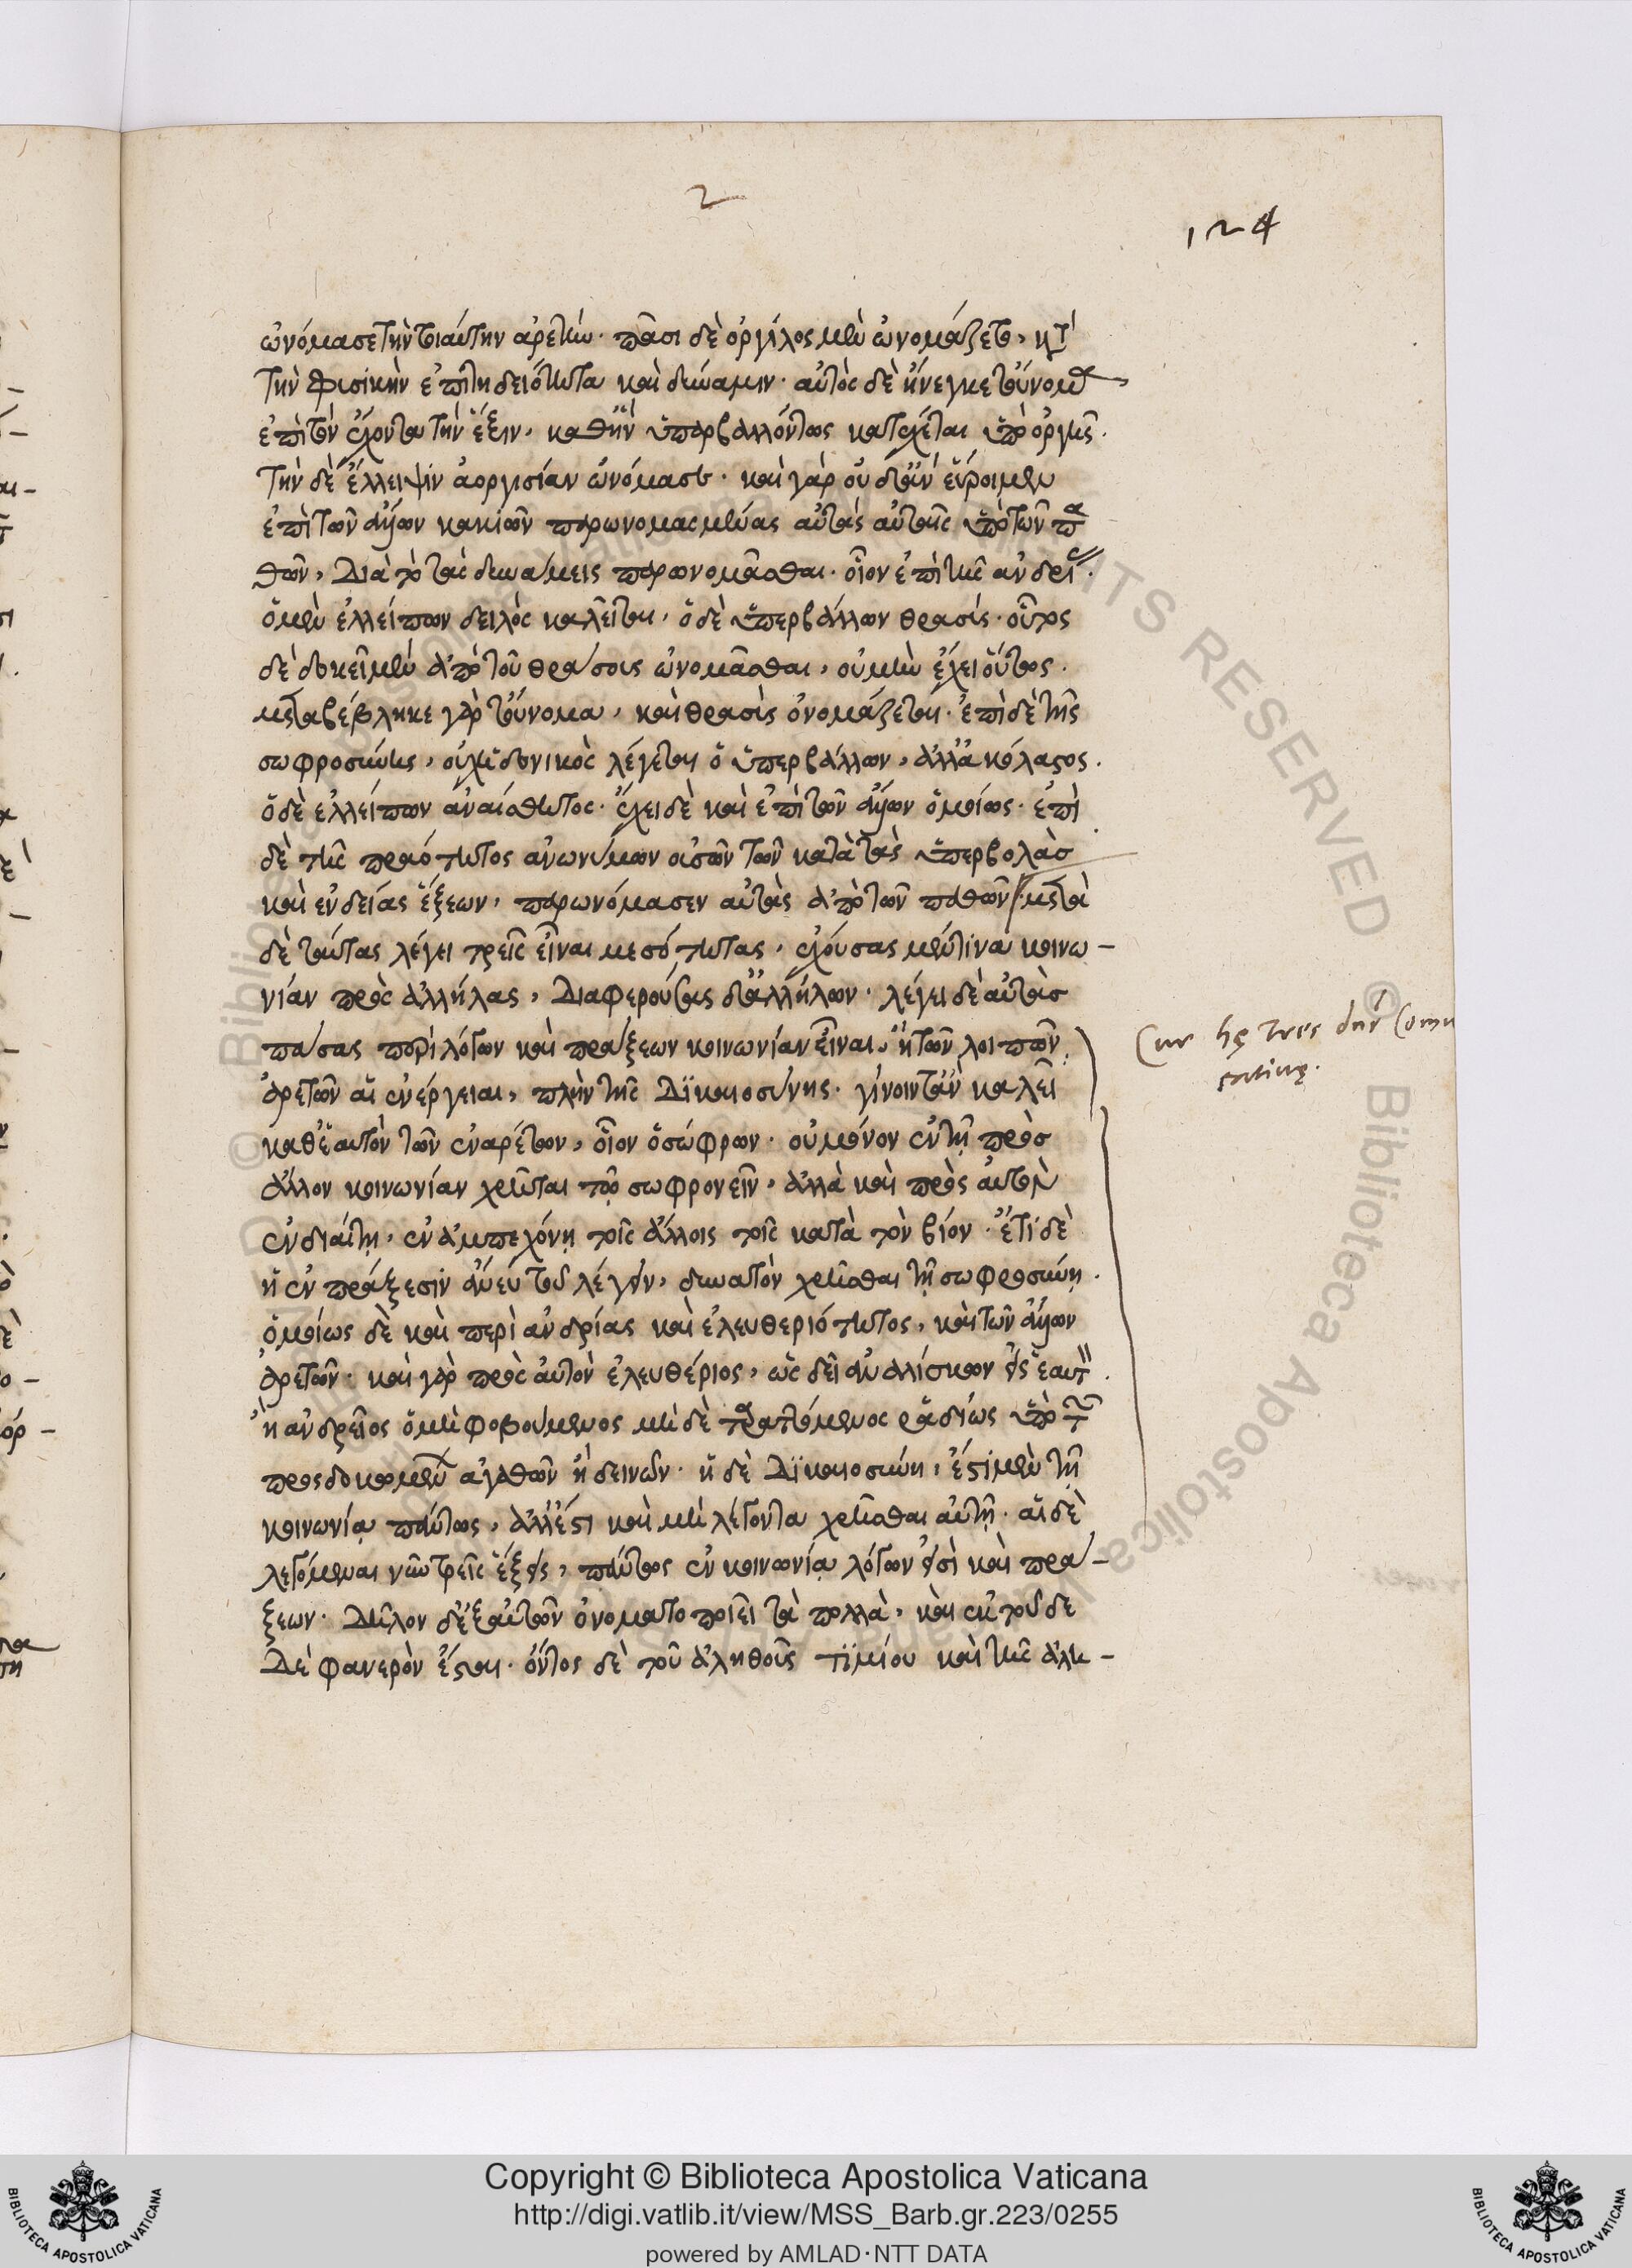 2
124
ὠνόμασε τὴν τοιαύτην ἀρετήν· πᾶσι δὲ ὀργίλος μὲν ὠνομάζετο, κατὰ
τὴν φυσικὴν ἐπιτηδειότητα καὶ δύναμιν· αὐτὸς δὲ ἤνεγκε τοὔνομα
ἐπὶ τὸν ἔχοντα τὴν ἕξιν, καθ' ἣν ὑπερβαλλόντως κατέχεται ὑπὸ ὀργῆς.
τὴν δὲ ἔλλειψιν ἀοργισίαν ὠνόμασε· καὶ γὰρ οὐδ' ἂν εὕροιμεν
ἐπὶ τῶν ἄλλων κακιῶν παρωνομασμένας αὐτὰς αὐταῖς ὑπὸ τῶν πα
θῶν, διὰ τὸ τὰς δυνάμεις παρωνομᾶσθαι· οἷον ἐπὶ τῆς ἀνδρεί.
ὁ μὲν ἐλλείπων δειλὸς καλεῖται, ὁ δὲ ὑπερβάλλων θρασύς· οὗτος
δὲ δοκεῖ μὲν ἀπὸ τοῦ θράσους ὠνομᾶσθαι, οὐ μὴν ἔχει οὕτως.
μεταβέβληκε γὰρ τοὔνομα, καὶ θρασὺς ὀνομάζεται· ἐπὶ δὲ τῆς
σωφροσύνης, οὐχ ἡδονικὸς λέγεται ὁ ὑπερβάλλων, ἀλλ' ἀκόλαστος.
ὁ δὲ ἐλλείπων ἀναίσθητος· ἔχει δὲ καὶ ἐπὶ τῶν ἄλλων ὁμοίως· ἐπὶ
δὲ τῆς πραότητος ἀνωνύμων οὐσῶν τῶν κατὰ τὰς ὑπερβολὰς
καὶ ἐνδείας ἕξεων, παρωνόμασεν αὐτὰς ἀπὸ τῶν παθῶν· μετὰ
δὲ ταύτας λέγει τρεῖς εἶναι μεσότητας, ἐχούσας μέν τινα κοινω-
νίαν πρὸς ἀλλήλας, διαφερούσας δ' ἀλλήλων· λέγει δὲ αὐτὰς
πάσας περὶ λόγων καὶ πράξεων κοινωνίαν εἶναι, ἢ τῶν λοιπῶν
ἀρετῶν αἱ ἐνέργειαι, πλὴν τῆς δικαιοσύνης· γίνοιντ' ἂν καλεῖ
καθ' ἑαυτὸν τῶν ἐναρέτων, οἷον ὁ σώφρων· οὐ μόνον ἐν τῇ πρὸς
ἄλλον κοινωνίαν χρῆται τῷ σωφρονεῖν, ἀλλὰ καὶ πρὸς αὑτὸν
ἐν διαίτῃ, ἐν ἀμπεχόνῃ τοῖς ἄλλοις τοῖς κατὰ τὸν βίον· ἔτι δὲ
ἢ ἐν πράξεσιν ἄνευ τοῦ λέγειν, δυνατὸν χρῆσθαι τῇ σωφροσύνῃ.
ὁμοίως δὲ καὶ περὶ ἀνδρίας καὶ ἐλευθεριότητος, καὶ τῶν ἄλλων
ἀρετῶν· καὶ γὰρ πρὸς αὑτὸν ἐλευθέριος, ὡς δεῖ ἀναλίσκων εἰς ἑαυτ.
ἢ ἀνδρεῖος ὁ μὴ φοβούμενος μὴ δὲ τραπόμενος ῥᾳδίως ὑπὸ τῶν
προσδοκωμένων ἀγαθῶν ἢ δεινῶν· ἡ δὲ δικαιοσύνη, ἔστι μὲν τῇ
κοινωνίᾳ πάντως, ἀλλ' ἔστι καὶ μὴ λέγοντα χρῆσθαι αὐτῇ· αἱ δὲ
λεγόμεναι νῦν τρεῖς ἕξεις, πάντως ἐν κοινωνίᾳ λόγων εἰσὶ καὶ πρά-
ξεων· δῆλον δ' ἐξ αὐτῶν ὀνοματοποιεῖ τὰ πολλὰ, καὶ ἐκ τοῦδε
δὲ φανερὸν ἔσται· ὄντος δὲ τοῦ ἀληθοῦς τιμίου καὶ τῆς ἀλη-
Cur hę tres
Copyright © Biblioteca Apostolica Vaticana
http://digi.vatlib.it/view/MSS_Barb.gr.223/0255
powered by AMLAD·NTT DATA